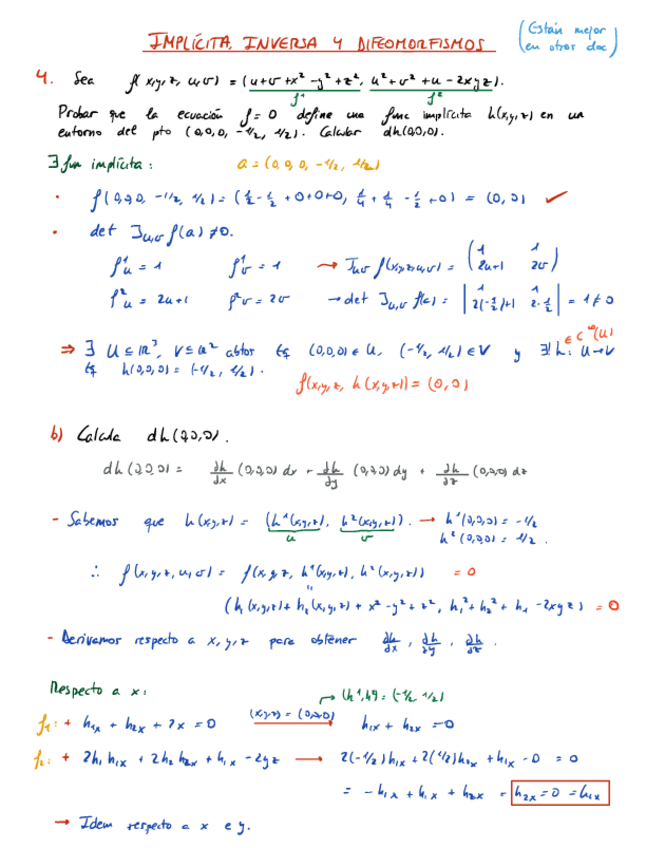 IMPLÍCITA, INVERSA Y DIFEOMORFISMOS
(Están mejor en otros doc)
4. Sea f(x,y,z,u,v) = (u+v+x²-y²+z², u²+v²+u-2xyz).
f¹ f²
Probar que la ecuación f=0 define una func implícita h(x,y,z) en un
entorno del pto (0,0,0,-1/2,1/2). Calcular dh(0,0,0).
∃ fun implícita: a = (0,0,0,-1/2,1/2)
· f(0,0,0,-1/2,1/2) = (1/2-1/2+0+0+0, 1/4+1/4-1/2+0) = (0,0) ✓
· det J_{u,v} f(a) ≠ 0.
f¹u = 1 f¹v = 1 → J_{uv} f(x,y,z,u,v) = (1 1 / 2u+1 2v)
f²u = 2u+1 f²v = 2v → det J_{u,v} f(a) = |1 1 / 2(-1/2)+1 2·1/2| = 1 ≠ 0
⇒ ∃ U ⊆ ℝ³, V ⊆ ℝ² abtos tq (0,0,0) ∈ U, (-1/2,1/2) ∈ V y ∃! h: U→V ∈ C^∞(U)
tq h(0,0,0) = (-1/2,1/2).
f(x,y,z,h(x,y,z)) = (0,0)
b) Calcula dh(0,0,0).
dh(0,0,0) = ∂h/∂x (0,0,0) dx + ∂h/∂y (0,0,0) dy + ∂h/∂z (0,0,0) dz
- Sabemos que h(x,y,z) = (h¹(x,y,z), h²(x,y,z)). → h¹(0,0,0) = -1/2
u v h²(0,0,0) = 1/2.
∴ f(x,y,z,u,v) = f(x,y,z,h¹(x,y,z),h²(x,y,z)) = 0
"
(h₁(x,y,z)+h₂(x,y,z)+x²-y²+z², h₁²+h₂²+h₁-2xyz) = 0
- Derivamos respecto a x,y,z para obtener ∂h/∂x, ∂h/∂y, ∂h/∂z.
Respecto a x: (h¹,h²) = (-1/2,1/2)
f₁: + h₁x + h₂x + 2x = 0 (x,y,z)=(0,0,0) → h₁x + h₂x = 0
f₂: + 2h₁h₁x + 2h₂h₂x + h₁x - 2yz → 2(-1/2)h₁x + 2(1/2)h₂x + h₁x - 0 = 0
= -h₁x + h₁x + h₂x = h₂x = 0 = h₁x
→ Idem respecto a x e y.